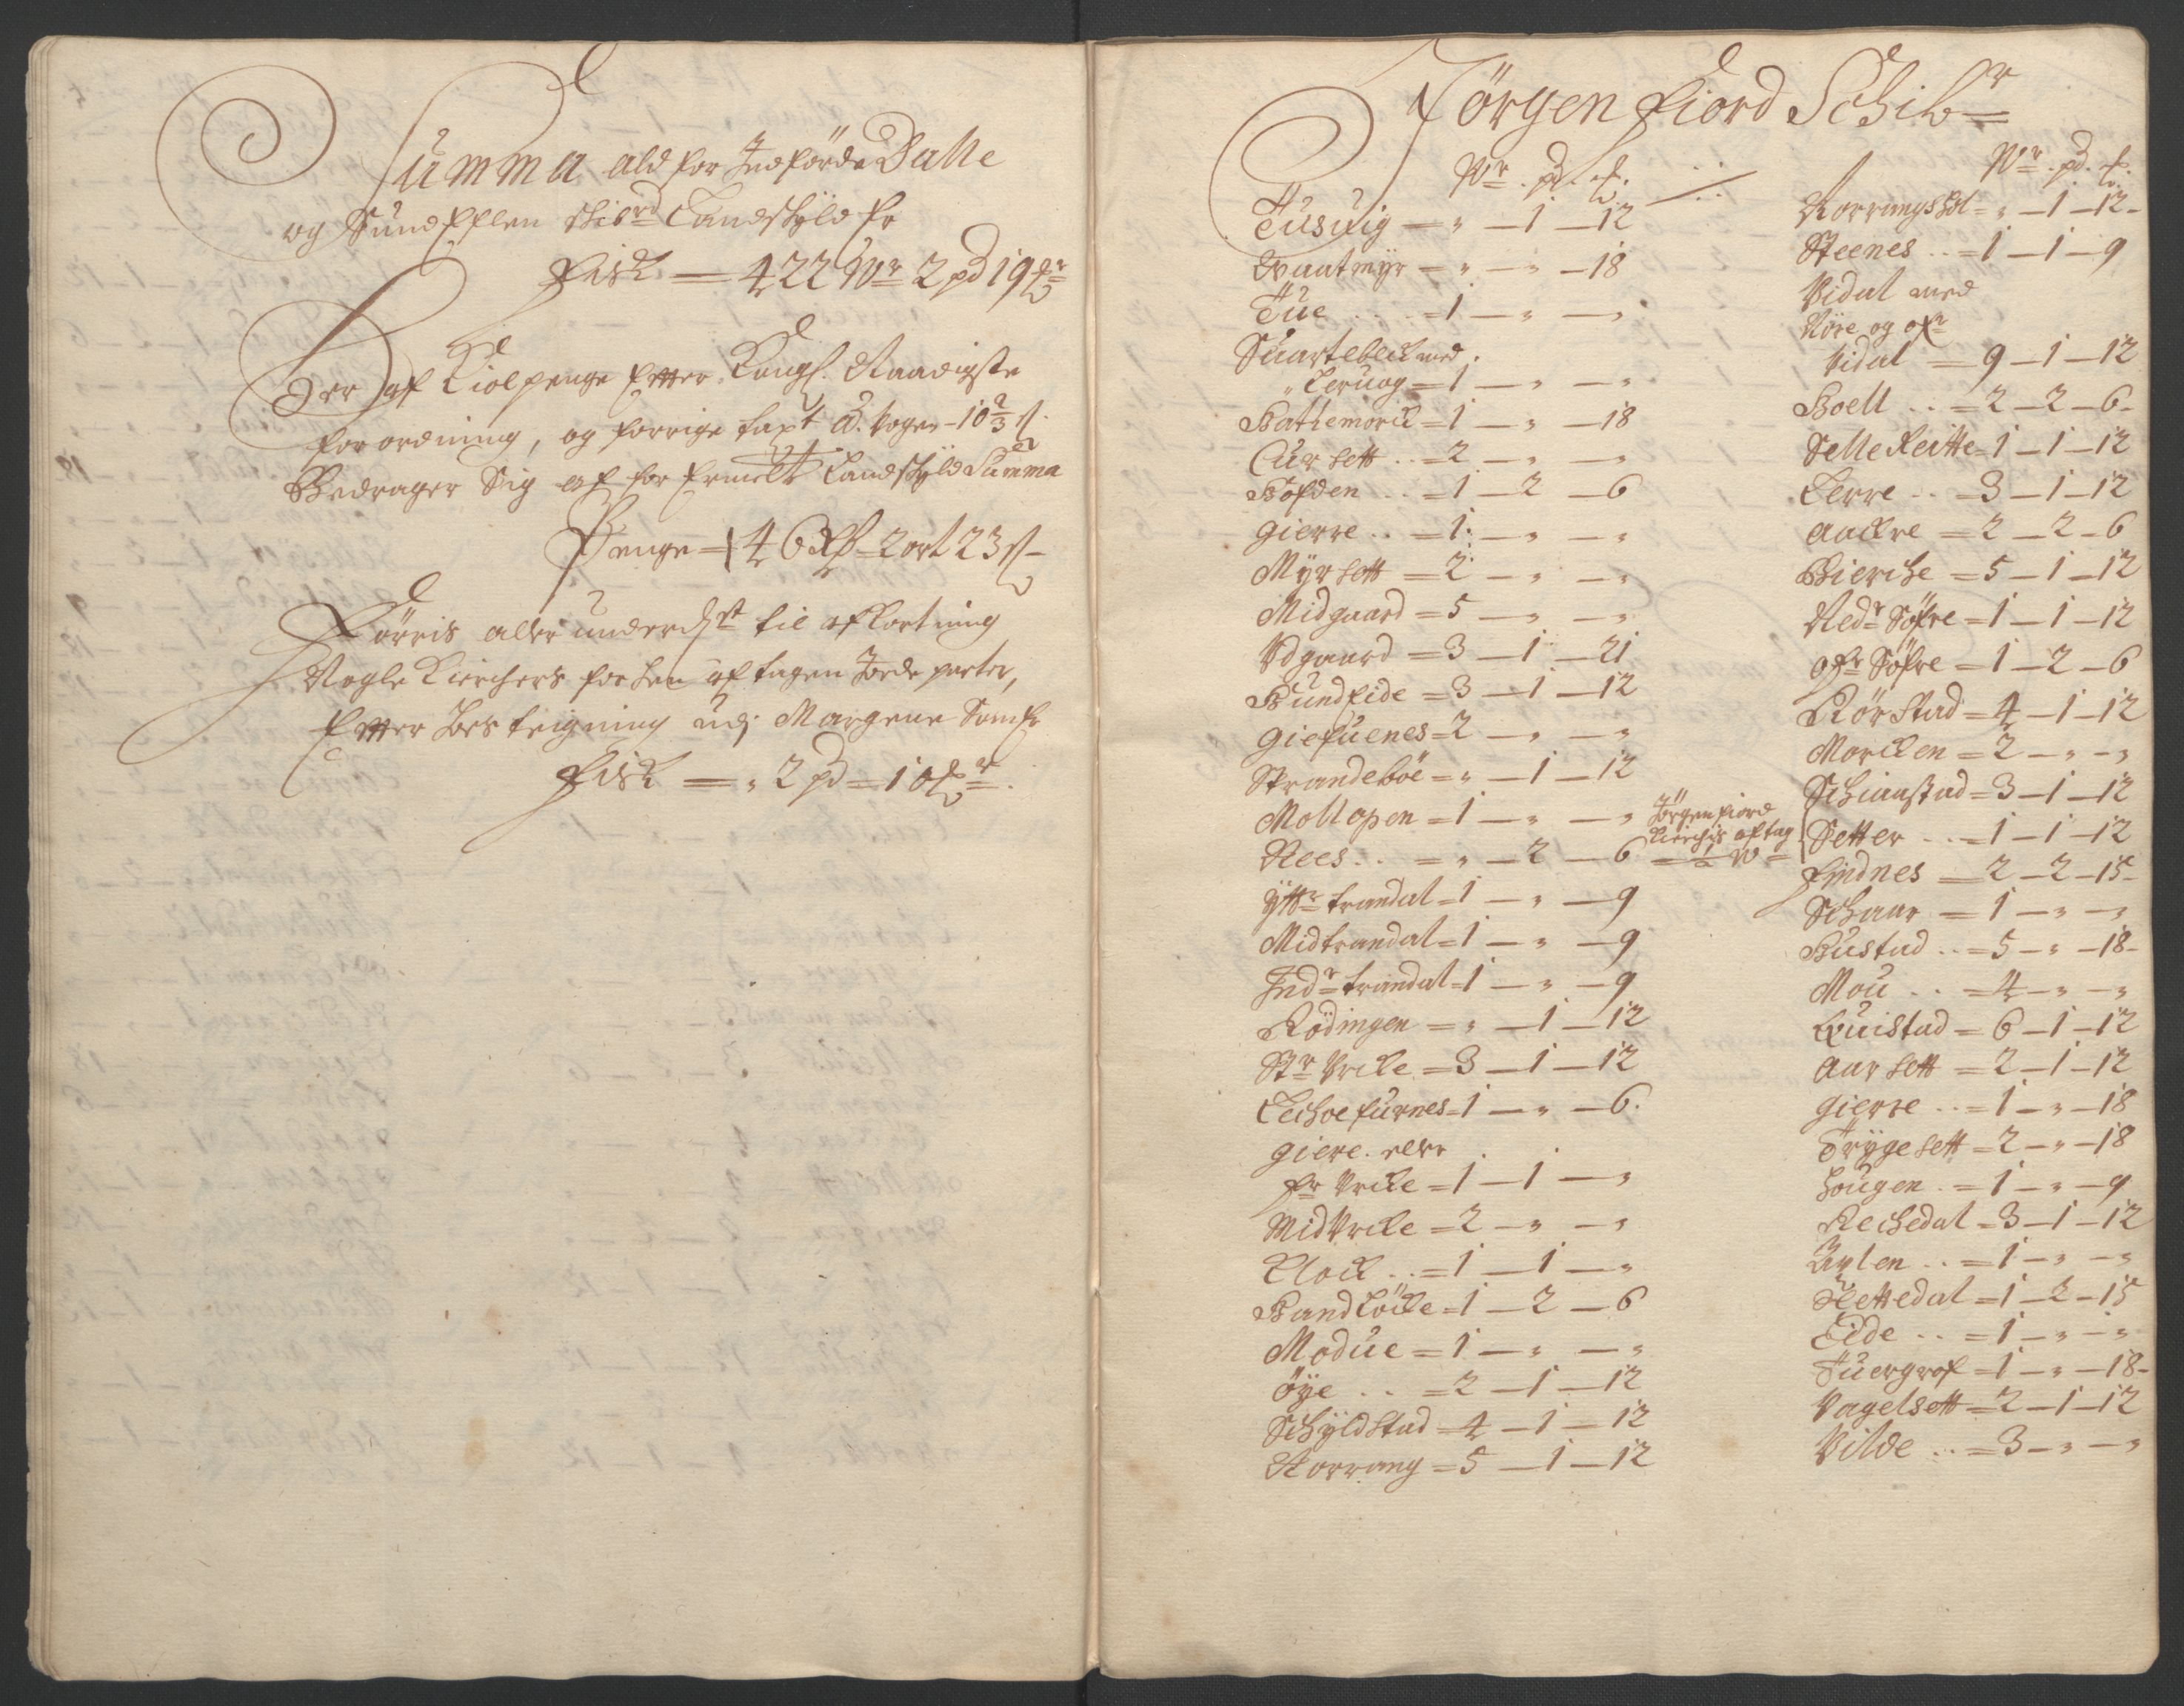 Summa ald for Indförde Dalle
og Sundeflen Skibrd Landskyld Er
Fisk = 422 Wr 2 pd 19 mr
Der af Kiolpenge Efter Kongl. Naadigste
forordning, og forrige taxt á Voger 10 2/3 s
Bedrager Sig af for Ermelte Landskyld Summa
Penge = 46 Rd 2 ort 23 s
Förris aller underdst til afkortning
Nogle Kierchers for hen aftagen Jorde parter,
Efter besteigning udj Margene Som Er
Fisk = „ 2 pd = 10 mr
Jörgenfiord Schibr
Wr . pd . m.
Tusuig = „ — 1 — 12
Quatmyr = „ — „ — 18
Tue . . . = 1 — „ — „
Suartebeck med
„ Leruog = 1 — „ — „
Kallemorck = 1 — „ — 18
Aursett . . = 2 — „ — „
Hofden . . = 1 — 2 — 6
Gierre . . = 1 — „ — „
Myrsett = 2 — „ — „
Midgaard = 5 — „ — „
Vdgaard = 3 — 1 — 21
Bundeide = 3 — 1 — 12
Giefuenes = 2 — „ — „
Strandeböe = „ — 1 — 12
Mollopen = 1 — „ — „
Nees . . = „ — 2 — 6
Yttr trandal = 1 — „ — 9
Midtrandal = 1 — „ — 9
Indr trandal = 1 — „ — 9
Rödingen = „ — 1 — 12
Str Vrke = 3 — 1 — 12
Lechoefurnes = 1 — „ — 6
Giere. eller
fr Vrke = 1 — 1 — „
Mid Vrke = 2 — „ — „
Klock . . = 1 — 1 — „
Bandlöcke = 1 — 2 — 6
Modue = 1 — „ — „
Öye . . = 2 — 1 — 12
Schyldstad = 4 — 1 — 12
Norrang = 5 — 1 — 12
Jörgenfiord
Kierchis aftag
Wr . pd . m.
Norrangsdal = „ — 1 — 12
Steenes . . = 1 — 1 — 9
Vidal med
Nöre og ofr
Vidal = 9 — 1 — 12
Boell . . = 2 — 2 — 6
Sellereitte = 1 — 1 — 12
Lerre . . = 3 — 1 — 12
Aackre = 2 — 2 — 6
Bierche = 5 — 1 — 12
Nedr Söfre = 1 — 1 — 12
Ofr Söfre = 1 — 2 — 6
Rörstad = 4 — 1 — 12
Morcken = 2 — „ — „
Schianstad = 3 — 1 — 12
Setter . . = 1 — 1 — 12
Findnes = 2 — 2 — 15
Schaar = 1 — „ — „
Bustad . . = 5 — „ — 18
Mou . . = 4 — „ — „
Quistad = 6 — 1 — 12
Aarsett = 2 — 1 — 12
Gierre . . = 1 — „ — 18
Trygesett = 2 — „ — 18
Hougen . = 1 — „ — 9
Rechedal = 3 — 1 — 12
Aylen . . = 1 — „ — „
Slettedal = 1 — 2 — 15
Eide . . = 1 — „ — „
Tuergrof = 1 — „ — 18
Vagelsett = 2 — 1 — 12
Vilde . . = 3 — „ — „